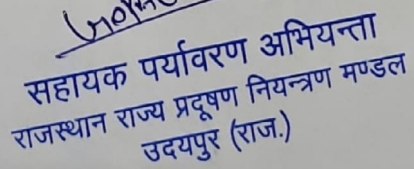 सहायक पर्यावरण अभियन्ता
राजस्थान राज्य प्रदूषण नियन्त्रण मण्डल
उदयपुर (राज.)